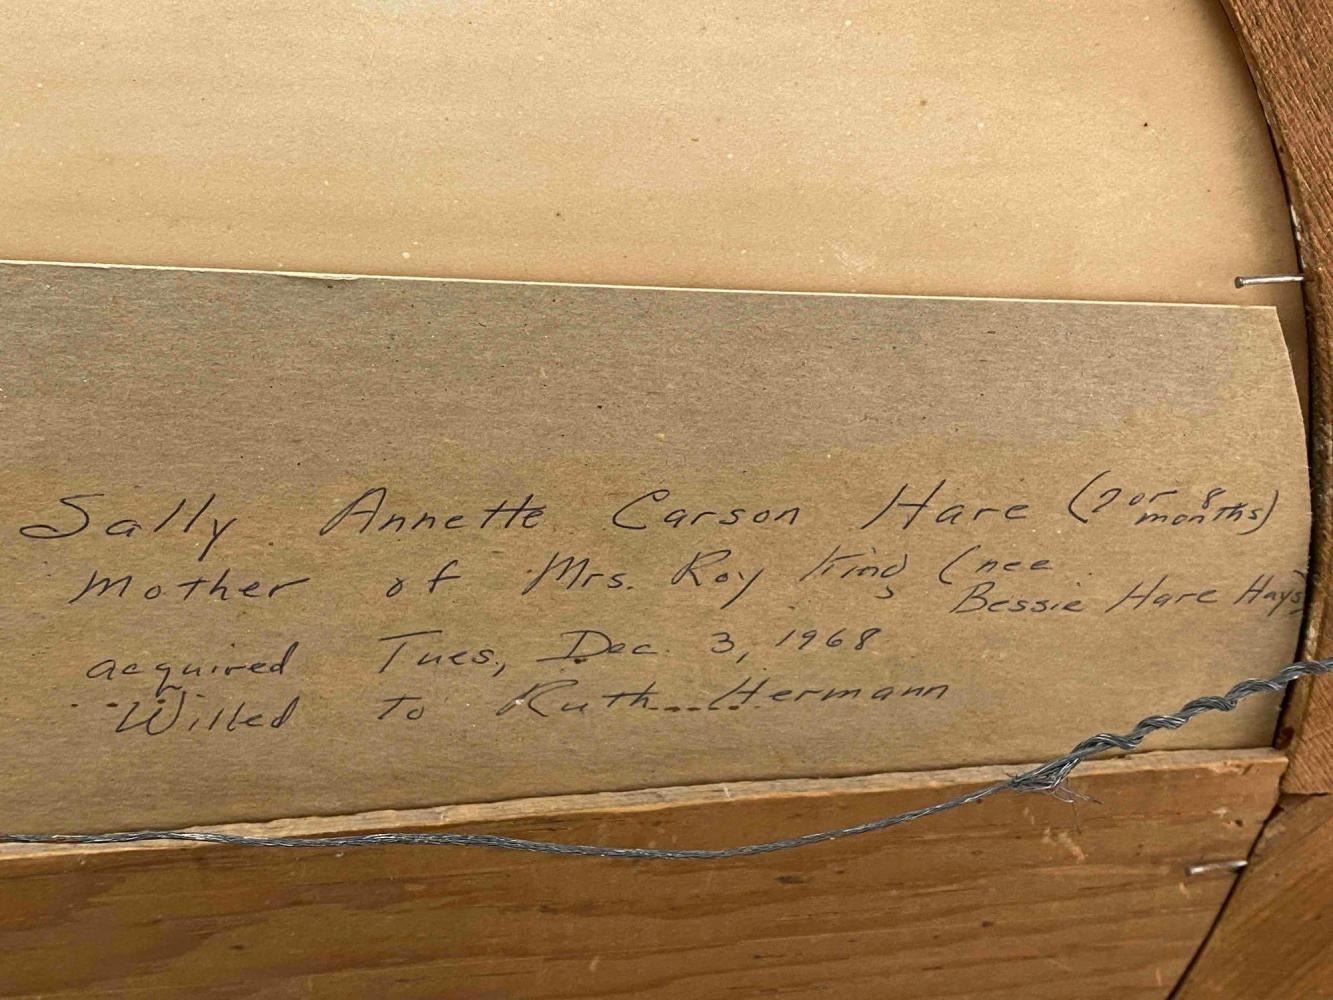 Sally Annette Carson Hare (7 or 8 months)
Mother of Mrs. Roy King (nee
Bessie Hare Hays)
acquired Tues, Dec. 3, 1968
Willed to Ruth Hermann